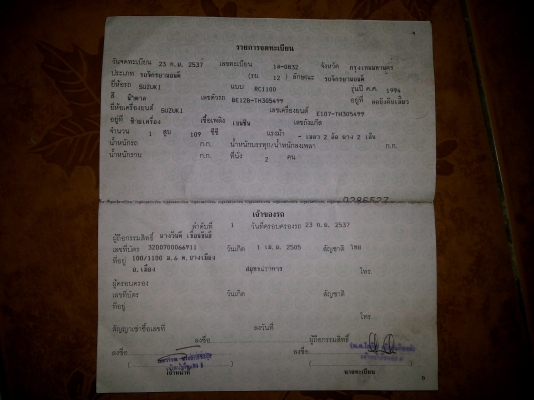 รายการจดทะเบียน
วันจดทะเบียน 23 ก.ย. 2537 เลขทะเบียน 1ด-0832 จังหวัด กรุงเทพมหานคร
ประเภท รถจักรยานยนต์ (รย. 12 ) ลักษณะ รถจักรยานยนต์
ยี่ห้อรถ SUZUKI แบบ RC110D รุ่นปี ค.ศ. 1994
สี เลขตัวรถ BE12B-TH305499 อยู่ที่
ยี่ห้อเครื่องยนต์ SUZUKI เลขเครื่องยนต์ E107-TH305499
อยู่ที่ ซ้ายเครื่อง เชื้อเพลิง เบนซิน เลขถังแก๊ส
จำนวน 1 สูบ 109 ซีซี แรงม้า - เพลา 2 ล้อ ยาง 2 เส้น
น้ำหนักรถ ก.ก. น้ำหนักบรรทุก/น้ำหนักลงเพลา ก.ก.
น้ำหนักรวม ก.ก. ที่นั่ง 2 คน
0286527
เจ้าของรถ
ลำดับที่ 1 วันที่ครอบครองรถ 23 ก.ย. 2537
ผู้ถือกรรมสิทธิ์
เลขที่บัตร 3200700066911 วันเกิด 1 เม.ย. 2505 สัญชาติ ไทย
ที่อยู่ 100/1100 ม.6 ต.บางเมือง
อ.เมือง สมุทรปราการ โทร.
ผู้ครอบครอง
เลขที่บัตร วันเกิด สัญชาติ
ที่อยู่
โทร.
สัญญาเช่าซื้อเลขที่ ลงวันที่
ลงชื่อ ผู้ถือกรรมสิทธิ์
ลงชื่อ ลงชื่อ
เจ้าหน้าที่ นายทะเบียน